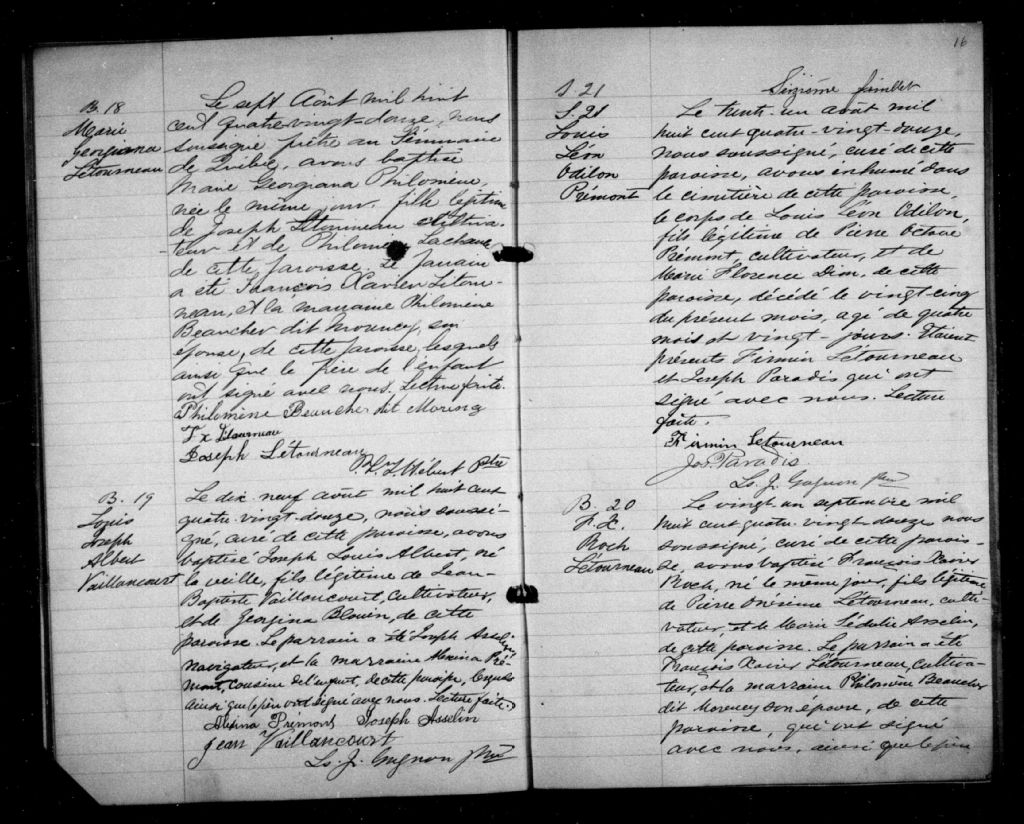 B. 18
Marie
Georgiana
Létourneau
Le sept Août mil huit
cent quatre-vingt-douze, nous
soussigné prêtre au Séminaire
de Québec, avons baptisé
Marie Georgiana Philomène,
née le même jour, fille légitime
de Joseph Létourneau cultiva-
teur et de Philomène Lachance
de cette paroisse. Le parrain
a été François Xavier Létour-
neau, et la marraine Philomène
Beaucher dit Morency, son
épouse, de cette paroisse, lesquels
ainsi que le père de l'enfant
ont signé avec nous. Lecture faite.
Philomène Beaucher dit Morency
F x Létourneau
Joseph Létourneau
Hébert Ptre
B. 19
Louis
Joseph
Albert
Vaillancourt
Le dix-neuf août mil huit cent
quatre-vingt-douze, nous soussi-
gné, curé de cette paroisse, avons
baptisé Joseph Louis Albert, né
la veille, fils légitime de Jean-
Baptiste Vaillancourt, cultivateur,
et de Georgina Blouin, de cette
paroisse. Le parrain a été Joseph Asselin,
navigateur, et la marraine Alexina Pré-
mont, cousine de l'enfant, de cette paroisse, lesquels
ainsi que le père ont signé avec nous. Lecture faite.
Alexina Prémont Joseph Asselin
Jean Vaillancourt
Ls. J. Gagnon Ptre
16
Seizième feuillet
S. 21
S. 21
Louis
Léon
Odilon
Prémont
Le trente-un août mil
huit cent quatre-vingt-douze,
nous soussigné, curé de cette
paroisse, avons inhumé dans
le cimetière de cette paroisse,
le corps de Louis Léon Odilon,
fils légitime de Pierre Octave
Prémont, cultivateur, et de
Marie Florence Dion, de cette
paroisse, décédé le vingt-cinq
du présent mois, agé de quatre
mois et vingt-jours. Etaient
présents Firmin Létourneau
et Joseph Paradis qui ont
signé avec nous. Lecture
faite.
Firmin Letourneau
Jos. Paradis
Ls. J. Gagnon Ptre
B. 20
F. X.
Roch
Létourneau
Le vingt-un septembre mil
huit cent quatre-vingt-douze nous
soussigné, curé de cette parois-
se, avons baptisé François Xavier
Roch, né le même jour, fils légitime
de Pierre Onésime Létourneau, culti-
vateur, et de Marie Sédulie Asselin,
de cette paroisse. Le parrain a été
François Xavier Létourneau, cultiva-
teur, et la marraine Philomène Beaucher
dit Morency son épouse, de cette
paroisse, qui ont signé
avec nous, ainsi que le père